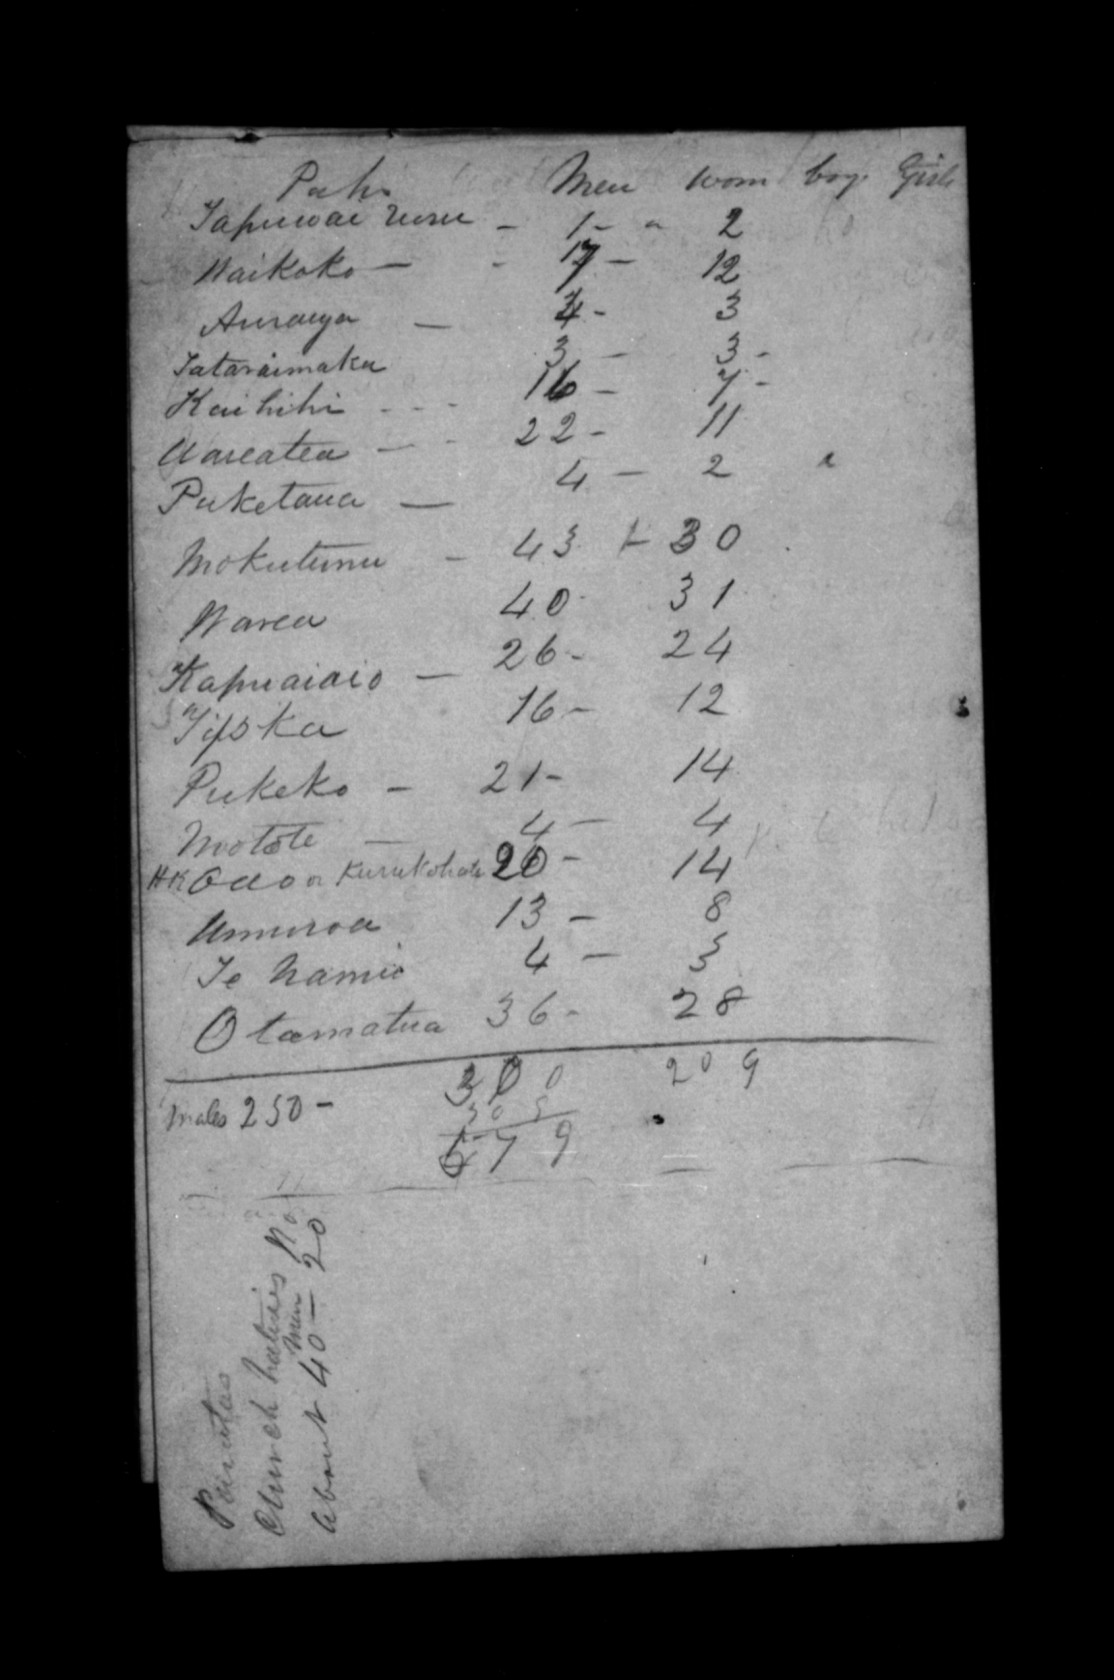 Pahs Men wom boy. Girls
Tapuwae ruru - 1 - " 2
Waikoko - - 17 - 12
Auraya - 4 - 3
Tataraimaka 3 - 3 -
Kaihihi - - - 16 - 7 -
Wareatea - - 22 - 11
Puketaua - 4 - 2
Mokutunu - 43 - 30
Warea 40 31
Kapuaiaio - 26 - 24
Tipoka 16 - 12
Pukeko - 21 - 14
Motote - 4 - 4
HK Oao or Kurukohatu 20 - 14
Umuroa 13 - 8
Te Namie 4 - 3
Otamatua 36 - 28
300 209
Males 250 -
579
Church natives No
men
About 40 - 20